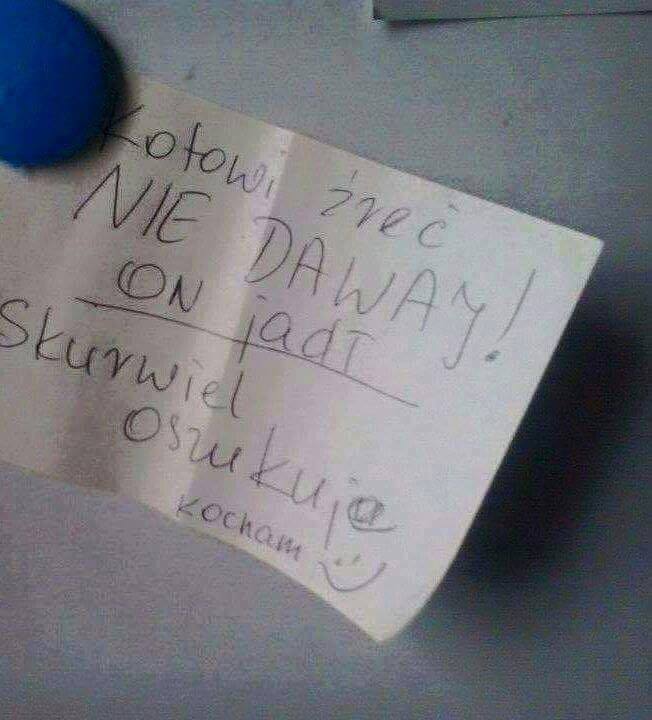 Kotowi żreć
NIE DAWAJ!
ON jadł
Skurwiel
oszukuje
kocham